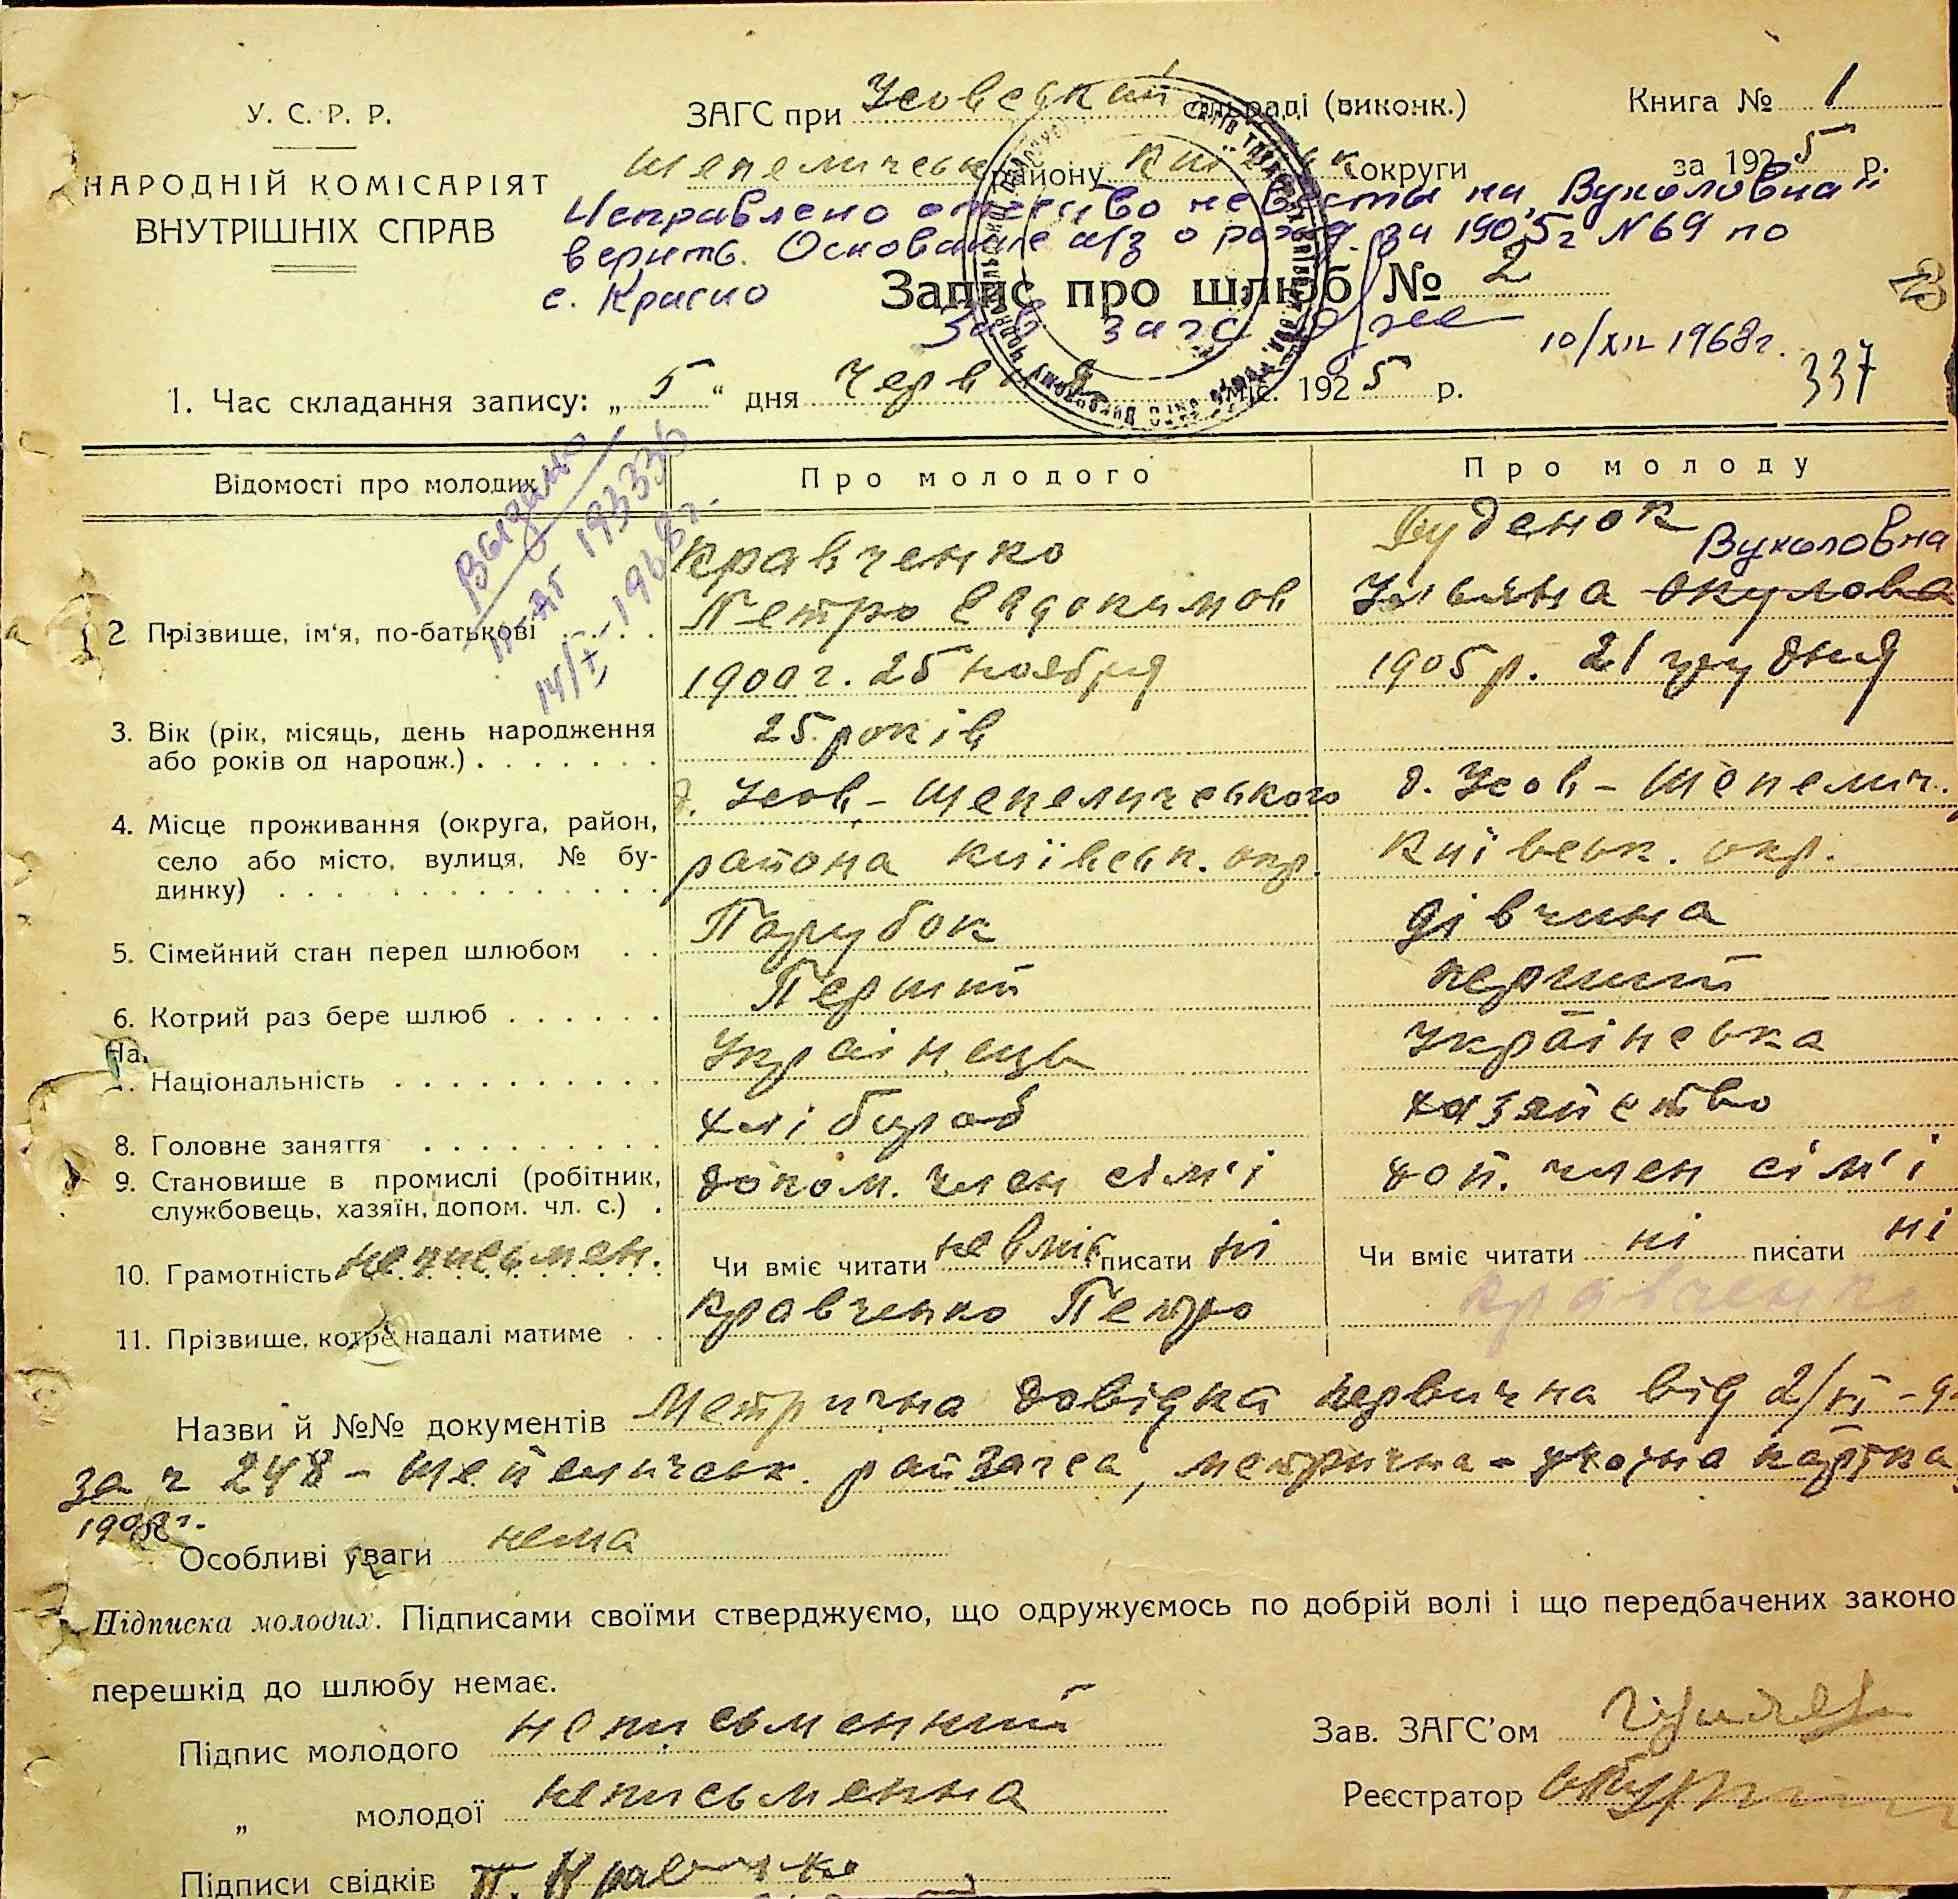 У. С. Р. Р.
НАРОДНІЙ КОМІСАРІЯТ
ВНУТРІШНІХ СПРАВ
ЗАГС при Усовській сільраді (виконк.)
Книга № 1
Шепеличськ району Київськ округи за 1925 р.
Исправлено отчество невесты на „Вукаловна"
верить. Основание а/з о рожд. за 1905г N69 по
с. Красно
Запис про шлюб № 2
Зав загс
10/XII 1968г.
337
1. Час складання запису: „5" дня Червня міс. 1925 р.
Відомості про молодих
Про молодого
Про молоду
Выдано
II-АГ 193336
14/X-1968г.
2 Прізвище, ім'я, по-батькові
Кравченко
Петро Евдокимов
Буденок
Вукаловна
Ульяна Окулова
1900г. 25 ноября
1905 р. 21 грудня
3. Вік (рік, місяць, день народження
або років од народж.)
25 років
4. Місце проживання (округа, район,
село або місто, вулиця, № бу-
динку)
д. Усов - Шепеличського
района Київськ. окр.
д. Усов - Шепелич.
Київськ. окр.
5. Сімейний стан перед шлюбом
Парубок
дівчина
6. Котрий раз бере шлюб
Перший
перший
На.
7. Національність
Українець
Українська
8. Головне заняття
хлібороб
хазяйство
9. Становище в промислі (робітник,
службовець, хазяїн, допом. чл. с.)
допом. член сім'і
доп. член сім'і
10. Грамотність неписьмен.
Чи вміє читати невміє писати ні
Чи вміє читати ні писати ні
11. Прізвище, котре надалі матиме
Кравченко Петро
Кравченко
Назви й №№ документів Метрична довідка первична від 2/VI
за ч 248 - Шепеличськ. райзагса, метрична - картка
Особливі уваги нема
Підписка молодих. Підписами своїми стверджуємо, що одружуємось по добрій волі і що передбачених законо
перешкід до шлюбу немає.
Підпис молодого неписьменний
Зав. ЗАГС'ом
„ молодої неписьменна
Реєстратор
Підписи свідків П. Кравченко